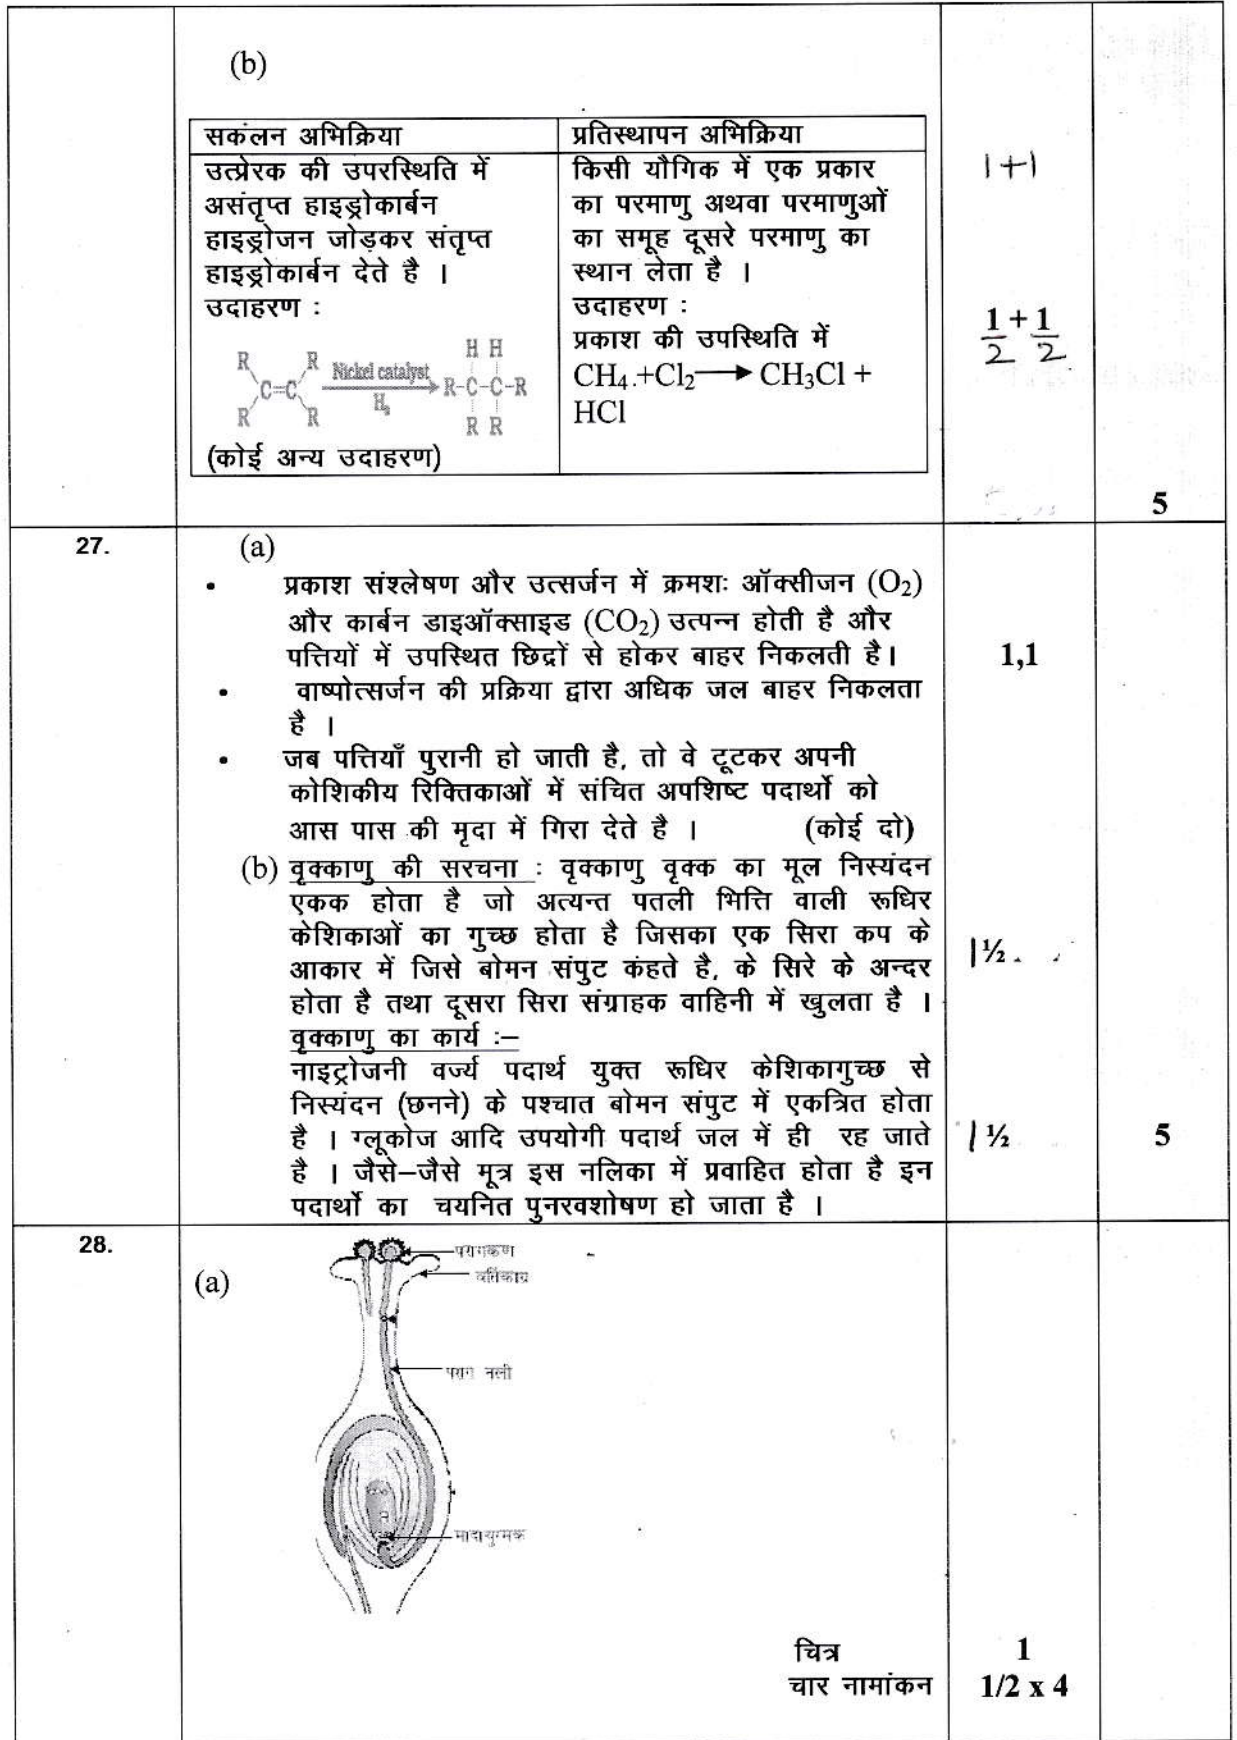 (b)
सकंलन अभिक्रिया
उत्प्रेरक की उपरस्थिति में
असंतृप्त हाइड्रोकार्बन
हाइड्रोजन जोड़कर संतृप्त
हाइड्रोकार्बन देते है ।
उदाहरण :
R R H H
C=C Nickel catalyst R-C-C-R
H₂
R R R R
(कोई अन्य उदाहरण)
प्रतिस्थापन अभिक्रिया
किसी यौगिक में एक प्रकार
का परमाणु अथवा परमाणुओं
का समूह दूसरे परमाणु का
स्थान लेता है ।
उदाहरण :
प्रकाश की उपस्थिति में
CH₄.+Cl₂⟶ CH₃Cl +
HCl
1+1
1/2 + 1/2
5
27.
(a)
• प्रकाश संश्लेषण और उत्सर्जन में क्रमशः ऑक्सीजन (O₂)
और कार्बन डाइऑक्साइड (CO₂) उत्पन्न होती है और
पत्तियों में उपस्थित छिद्रों से होकर बाहर निकलती है।
1,1
• वाष्पोत्सर्जन की प्रक्रिया द्वारा अधिक जल बाहर निकलता
है ।
• जब पत्तियाँ पुरानी हो जाती है, तो वे टूटकर अपनी
कोशिकीय रिक्तिकाओं में संचित अपशिष्ट पदार्थो को
आस पास की मृदा में गिरा देते है । (कोई दो)
(b) वृक्काणु की सरचना : वृक्काणु वृक्क का मूल निस्यंदन
एकक होता है जो अत्यन्त पतली भित्ति वाली रूधिर
केशिकाओं का गुच्छ होता है जिसका एक सिरा कप के
आकार में जिसे बोमन संपुट कंहते है, के सिरे के अन्दर
होता है तथा दूसरा सिरा संग्राहक वाहिनी में खुलता है ।
1½
वृक्काणु का कार्य :–
नाइट्रोजनी वर्ज्य पदार्थ युक्त रूधिर केशिकागुच्छ से
निस्यंदन (छनने) के पश्चात बोमन संपुट में एकत्रित होता
है । ग्लूकोज आदि उपयोगी पदार्थ जल में ही रह जाते
है । जैसे–जैसे मूत्र इस नलिका में प्रवाहित होता है इन
पदार्थो का चयनित पुनरवशोषण हो जाता है ।
1½
5
28.
(a)
परागकण
वर्तिकाग्र
पराग नली
मादायुग्मक
चित्र 1
चार नामांकन 1/2 x 4